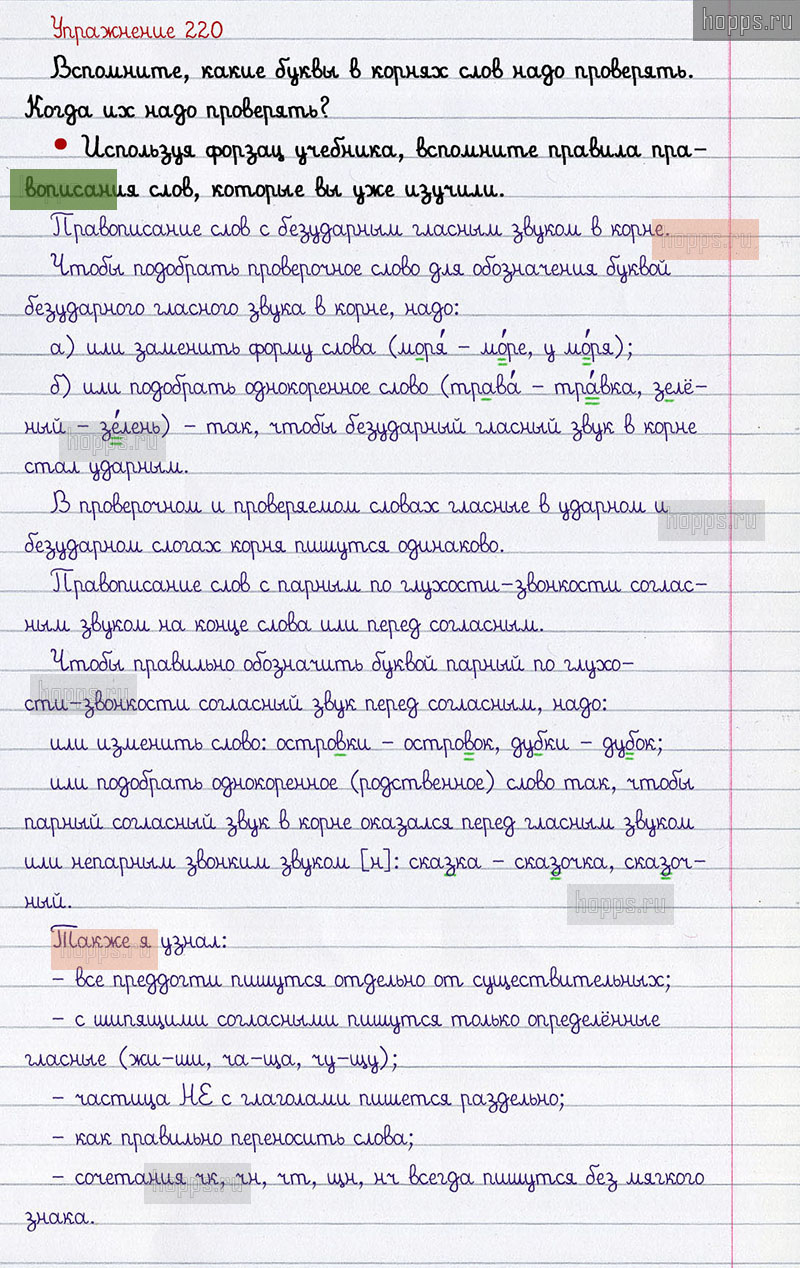 hopps.ru
Упражнение 220
Вспомните, какие буквы в корнях слов надо проверять.
Когда их надо проверять?
• Используя форзац учебника, вспомните правила пра-
вописания слов, которые вы уже изучили.
Правописание слов с безударным гласным звуком в корне.
hopps.ru
Чтобы подобрать проверочное слово для обозначения буквой
безударного гласного звука в корне, надо:
а) или заменить форму слова (моря́ – мо́ре, у мо́ря);
б) или подобрать однокоренное слово (трава́ – тра́вка, зелё-
ный – зе́лень) – так, чтобы безударный гласный звук в корне
hopps.ru
стал ударным.
В проверочном и проверяемом словах гласные в ударном и
hopps.ru
безударном слогах корня пишутся одинаково.
Правописание слов с парным по глухости-звонкости соглас-
ным звуком на конце слова или перед согласным.
Чтобы правильно обозначить буквой парный по глухо-
hopps.ru
сти-звонкости согласный звук перед согласным, надо:
или изменить слово: островки – островок, дубки – дубок;
или подобрать однокоренное (родственное) слово так, чтобы
парный согласный звук в корне оказался перед гласным звуком
или непарным звонким звуком [н]: сказка – сказочка, сказоч-
ный.
hopps.ru
Также я узнал:
hopps.ru
– все преддогти пишутся отдельно от существительных;
– с шипящими согласными пишутся только определённые
гласные (жи-ши, ча-ща, чу-щу);
– частица НЕ с глаголами пишется раздельно;
– как правильно переносить слова;
– сочетания чк, чн, чт, щн, нч всегда пишутся без мягкого
hopps.ru
знака.